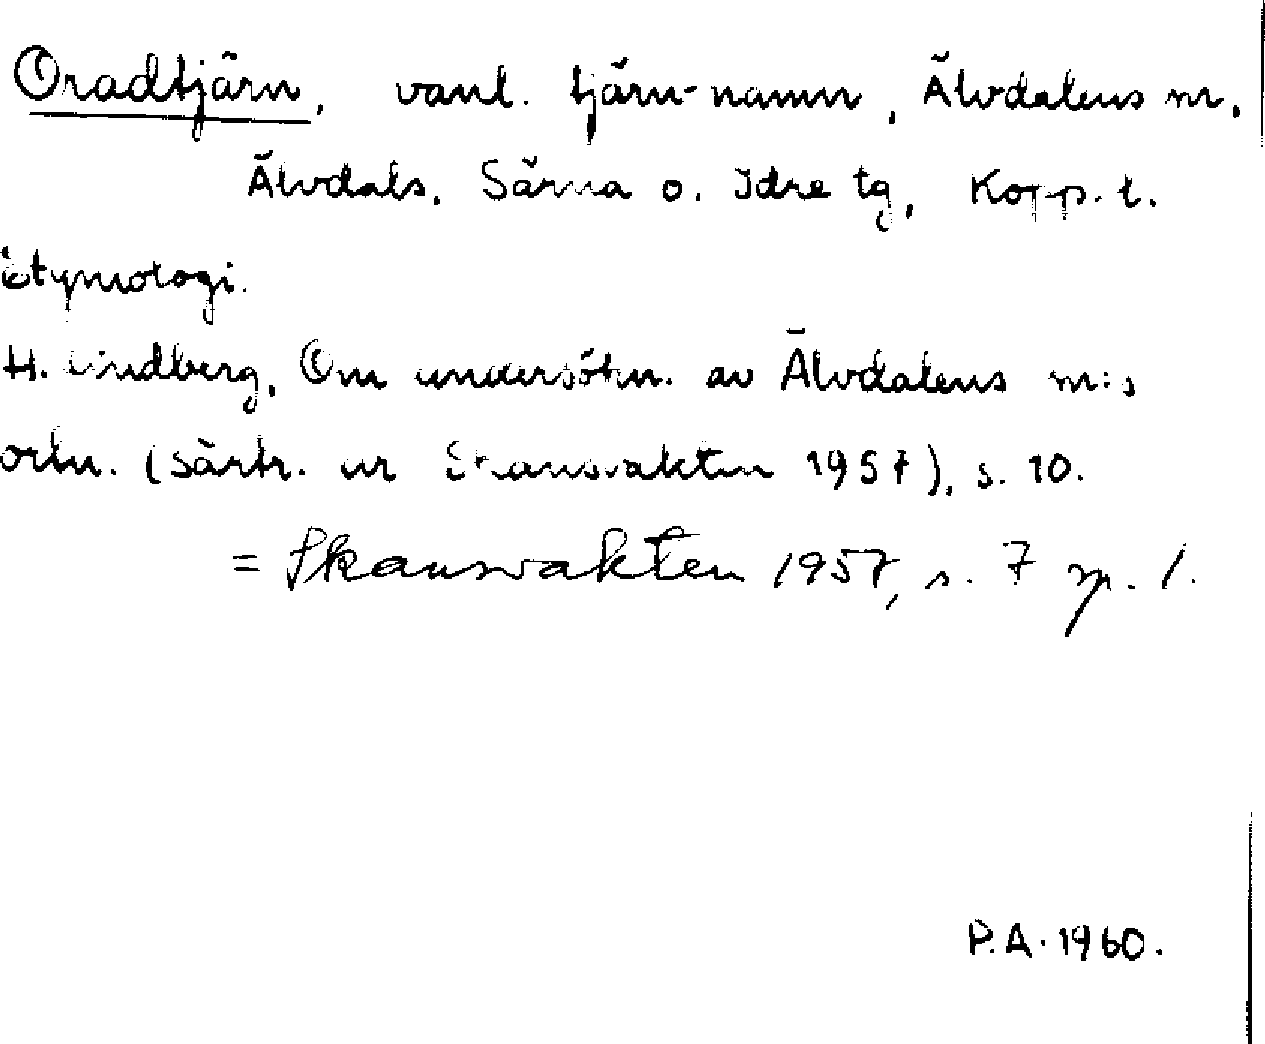 Oradtjärn, vanl. tjärn-namn, Älvdalens m.
Älvdals, Särna o. Idre tg, Kopp. l.
Etymologi.
H. Lindberg, Om undersökn. av Älvdalens m:s
ortn. (Särtr. ur Skansvakten 1957), s. 10.
= Skansvakten 1957, s. 7 sp. 1.
P.A. 1960.